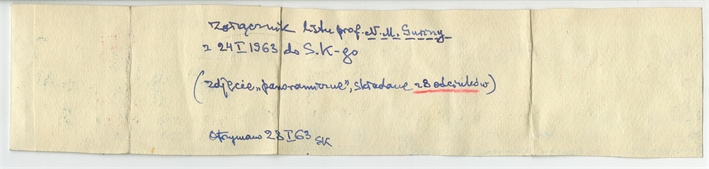 Załącznik listu prof. N. M. Guriny
z 24 I 1963 do S.K-go
(zdjęcie „panoramiczne", składane z 8 odcinków)
Otrzymano 28 I 63 SK